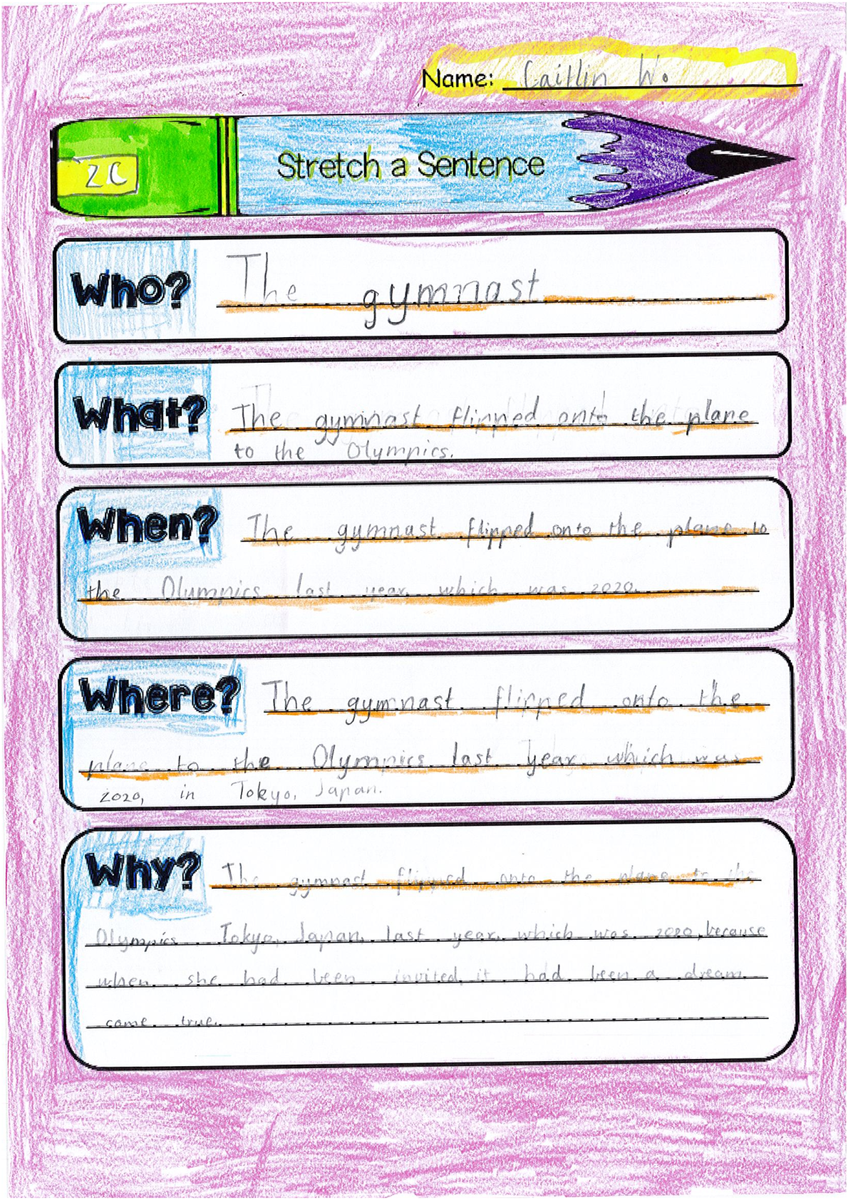 Name: Caitlin W.
2C
Stretch a Sentence
Who? The gymnast
What? The gymnast flipped onto the plane
to the Olympics.
When? The gymnast flipped onto the plane to
the Olympics last year which was 2020.
Where? The gymnast flipped onto the
plane to the Olympics last year which was
2020, in Tokyo, Japan.
Why? The gymnast flipped onto the plane to the
Olympics Tokyo, Japan, last year which was 2020, because
when she had been invited, it had been a dream
come true.